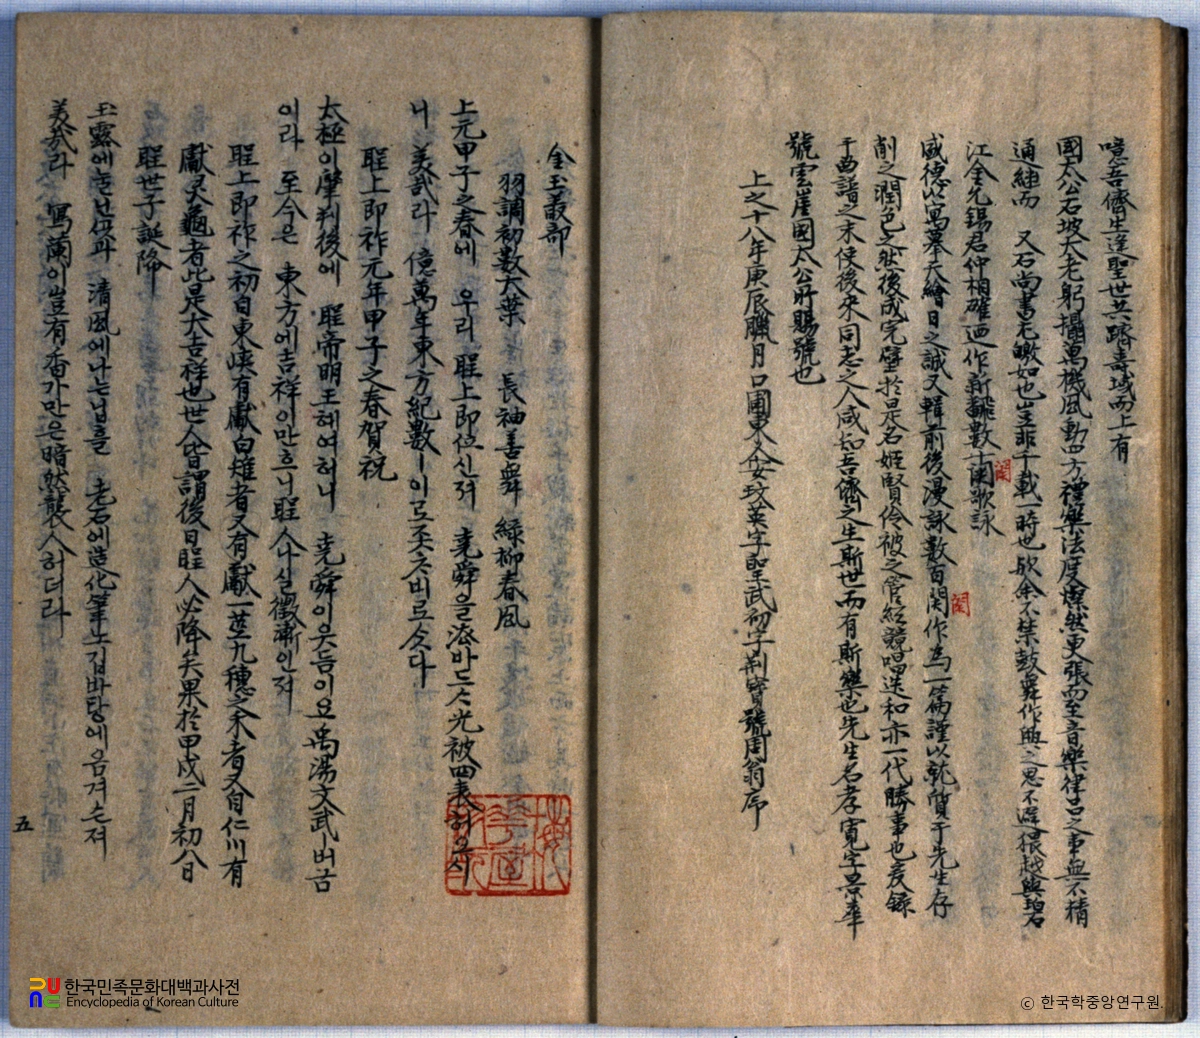 噫吾儕生逢聖世共躋壽域而上有
國太公石坡大老躬攝萬機風動四方禮樂法度燦然更張而至音樂律呂之事無不精
通繼而 又石尚書尤皦如也豈非千載一時也歟余不禁鼓舞作興之思不避猥越與碧
江金允錫君仲相確迺作新飜數十闋歌詠
闋
盛德以寓摹天繪日之誠又輯前後漫詠數百闋作為一篇謹以就質于先生存
闋
削之潤色之然後成完璧於是名姬賢伶被之管絃競唱迭和亦一代勝事也爰錄
于曲譜之末使後來同志之人咸知吾儕之生斯世而有斯樂也先生名孝寬字景華
號雲崖國太公所賜號也
上之十八年庚辰臘月口圃東人安玟英字聖武初字荊寶號周翁序
金玉叢部
羽調初數大葉 長袖善舞 綠柳春風
上元甲子之春에 우리 聖上卽位신져 堯舜을 法바드스 光被四表허오시
니 美哉라 億萬年東方紀數ㅣ 이로조ᄎ 비르슷다
聖上卽祚元年甲子之春賀祝
太極이 肇判後에 聖帝明王 헤여허니 堯舜이 웃듬이요 禹湯文武 버금
이라 至今은 東方에 吉祥이 만흐니 聖人나실 徵漸인져
聖上卽祚之初自東峽有獻白雉者又有獻一莖九穗之禾者又自仁川有
獻灵龜者此是大吉祥也世人皆謂後日聖人必降矣果於甲戌二月初八日
聖世子誕降
玉露에 눌닌 곳과 淸風에 나는 닙흘 老石에 造化筆노 깁바탕에 옴겨슨져
美哉라 寫蘭이 豈有香가만은 暗然襲人허더라
五
한국민족문화대백과사전
Encyclopedia of Korean Culture
ⓒ 한국학중앙연구원.